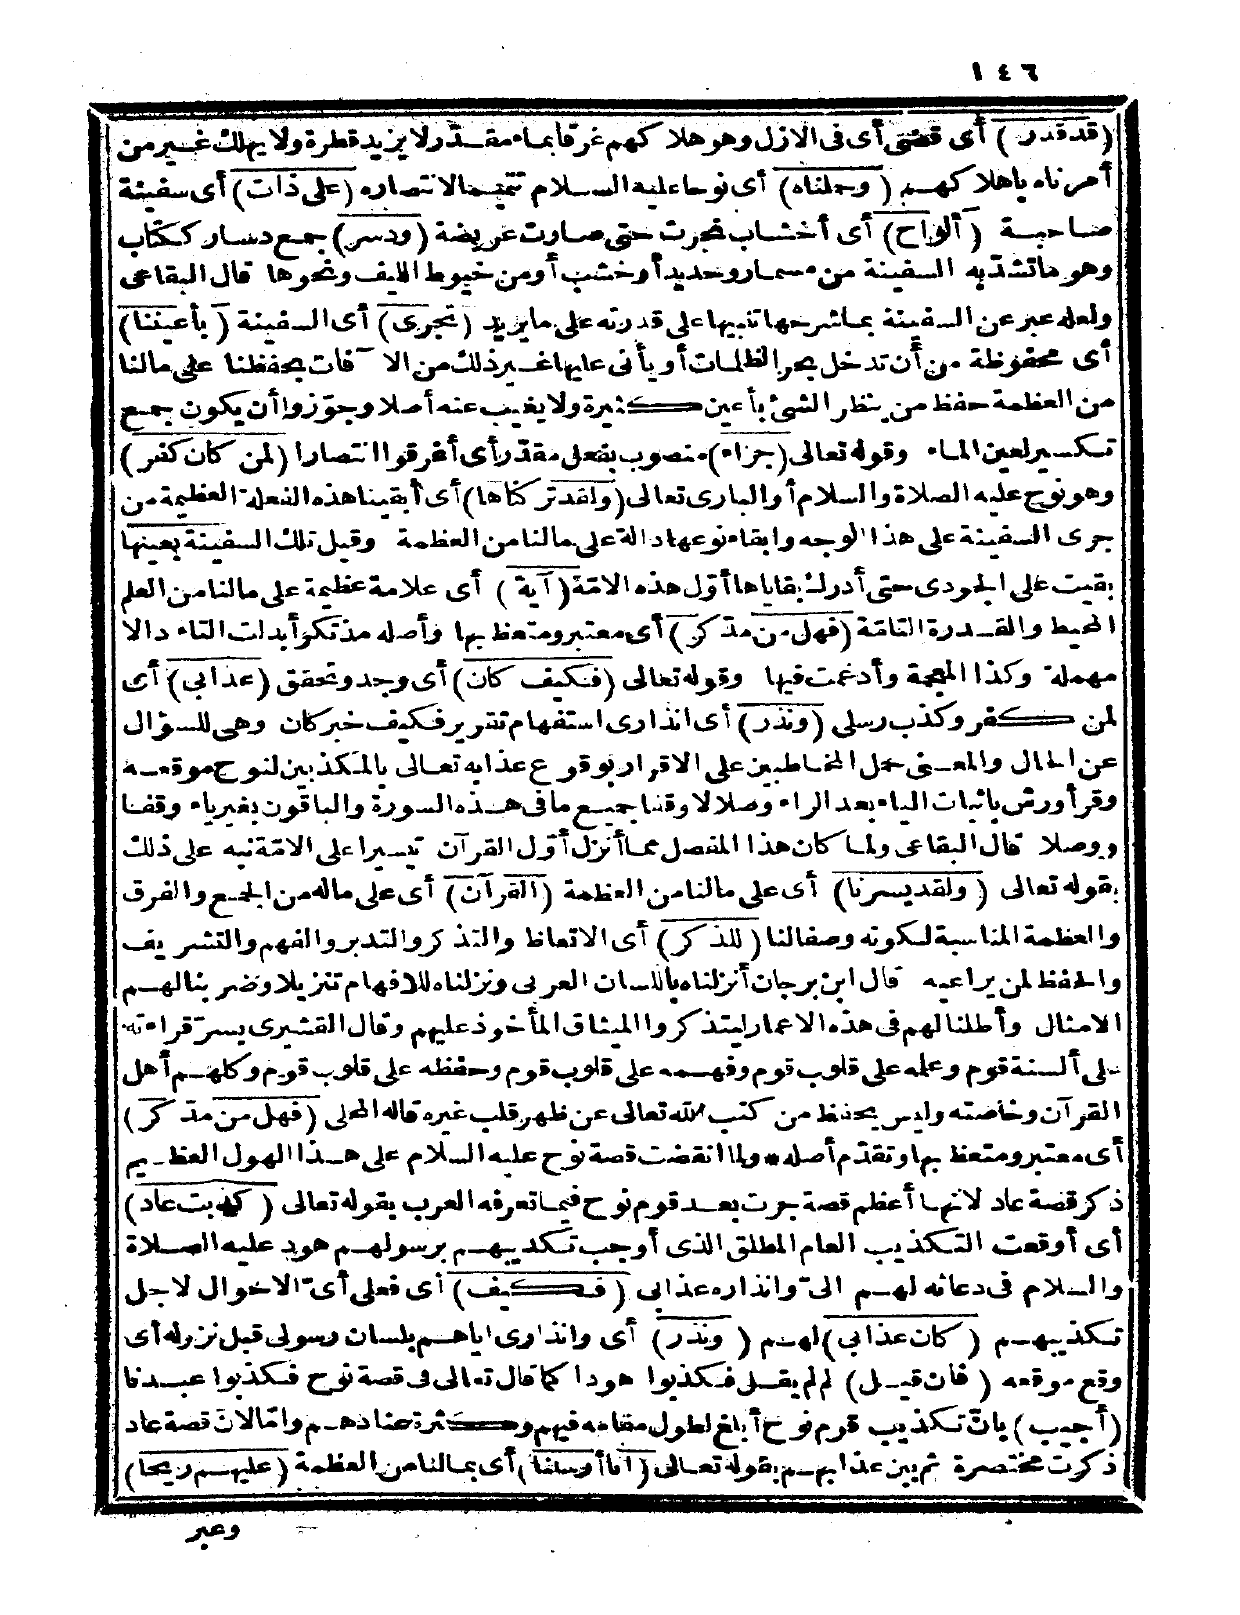 ١٤٦
(قد قدر) أى قضى أى فى الازل وهو هلاكهم غرقا بماء مقدّر لا يزيد قطرة ولا يهلك غير من
أمرناه باهلاكهم (وحملناه) أى نوحا عليه السلام تتميما لانتصاره (على ذات) أى سفينة
صاحبة (ألواح) أى أخشاب نجرت حتى صارت عريضة (ودسر) جمع دسار ككتاب
وهو ما تشدّ به السفينة من مسمار وحديد أو خشب أو من خيوط الليف ونحوها قال البقاعى
ولعله عبر عن السفينة بما شرحها تنبيها على قدرته على ما يريد (تجرى) أى السفينة (بأعيننا)
أى محفوظة من أن تدخل بحر الظلمات أو يأتى عليها غير ذلك من الا آفات بحفظنا على مالنا
من العظمة حفظ من ينظر الشئ بأعين كثيرة ولا يغيب عنه أصلا وجوّزوا أن يكون جمع
تكسير لعين الماء وقوله تعالى (جزاء) منصوب بفعل مقدّر أى أغرقوا انتصارا (لمن كان كفر)
وهو نوح عليه الصلاة والسلام أو البارى تعالى (ولقد تركناها) أى أبقينا هذه الفعلة العظيمة من
جرى السفينة على هذا الوجه وابقاء نوعها دالة على مالنا من العظمة وقيل تلك السفينة بعينها
بقيت على الجودى حتى أدرك بقاياها أوّل هذه الامّة (آية) أى علامة عظيمة على مالنا من العلم
المحيط والقدرة التامّة (فهل من مدّكر) أى معتبر ومتعظ بها وأصله مذتكر أبدلت التاء دالا
مهملة وكذا المعجمة وأدغمت فيها وقوله تعالى (فكيف كان) أى وجد وتحقق (عذابى) أى
لمن كفر وكذب رسلى (ونذر) أى انذارى استفهام تقرير فكيف خبر كان وهى للسؤال
عن الحال والمعنى حمل المخاطبين على الاقرار بوقوع عذابه تعالى بالمكذبين لنوح موقعه
وقرأ ورش باثبات الياء بعد الراء وصلا لا وقفا جميع ما فى هذه السورة والباقون بغير ياء وقفا
ووصلا قال البقاعى ولما كان هذا المفصل مما أنزل أوّل القرآن تيسيرا على الامّة نبه على ذلك
بقوله تعالى (ولقد يسرنا) أى على مالنا من العظمة (القرآن) أى على ماله من الجمع والفرق
والعظمة المناسبة لكونه وصفا لنا (للذكر) أى الاتعاظ والتذكر والتدبر والفهم والتشريف
والحفظ لمن يراعيه قال ابن برجان أنزلناه باللسان العربى ونزلناه للافهام تنزيلا وضربنا لهم
الامثال وأطلنا لهم فى هذه الاعمار ليتذكروا الميثاق المأخوذ عليهم وقال القشيرى يسر قراءته
على ألسنة قوم وعلمه على قلوب قوم وفهمه على قلوب قوم وحفظه على قلوب قوم وكلهم أهل
القرآن وخاصته وليس يحفظ من كتب الله تعالى عن ظهر قلب غيره قاله المحلى (فهل من مدّكر)
أى معتبر ومتعظ بها وتقدّم أصله * ولما انقضت قصة نوح عليه السلام على هذا الهول العظيم
ذكر قصة عاد لانها أعظم قصة جرت بعد قوم نوح فيما تعرفه العرب بقوله تعالى (كذبت عاد)
أى أوقعت التكذيب العام المطلق الذى أوجب تكذيبهم برسولهم هود عليه الصلاة
والسلام فى دعائه لهم الىّ وانذاره عذابى (فكيف) أى فعلى أىّ الاحوال لاجل
تكذيبهم (كان عذابى) لهم (ونذر) أى وانذارى اياهم بلسان رسولى قبل نزوله أى
وقع موقعه (فان قيل) لم لم يقل فكذبوا هودا كما قال تعالى فى قصة نوح فكذبوا عبدنا
(أجيب) بانّ تكذيب قوم نوح أبلغ لطول مقامه فيهم وكثرة عنادهم وامّا لانّ قصة عاد
ذكرت مختصرة ثم بين عذابهم بقوله تعالى (انا أرسلنا) أى بما لنا من العظمة (عليهم ريحا)
وعبر